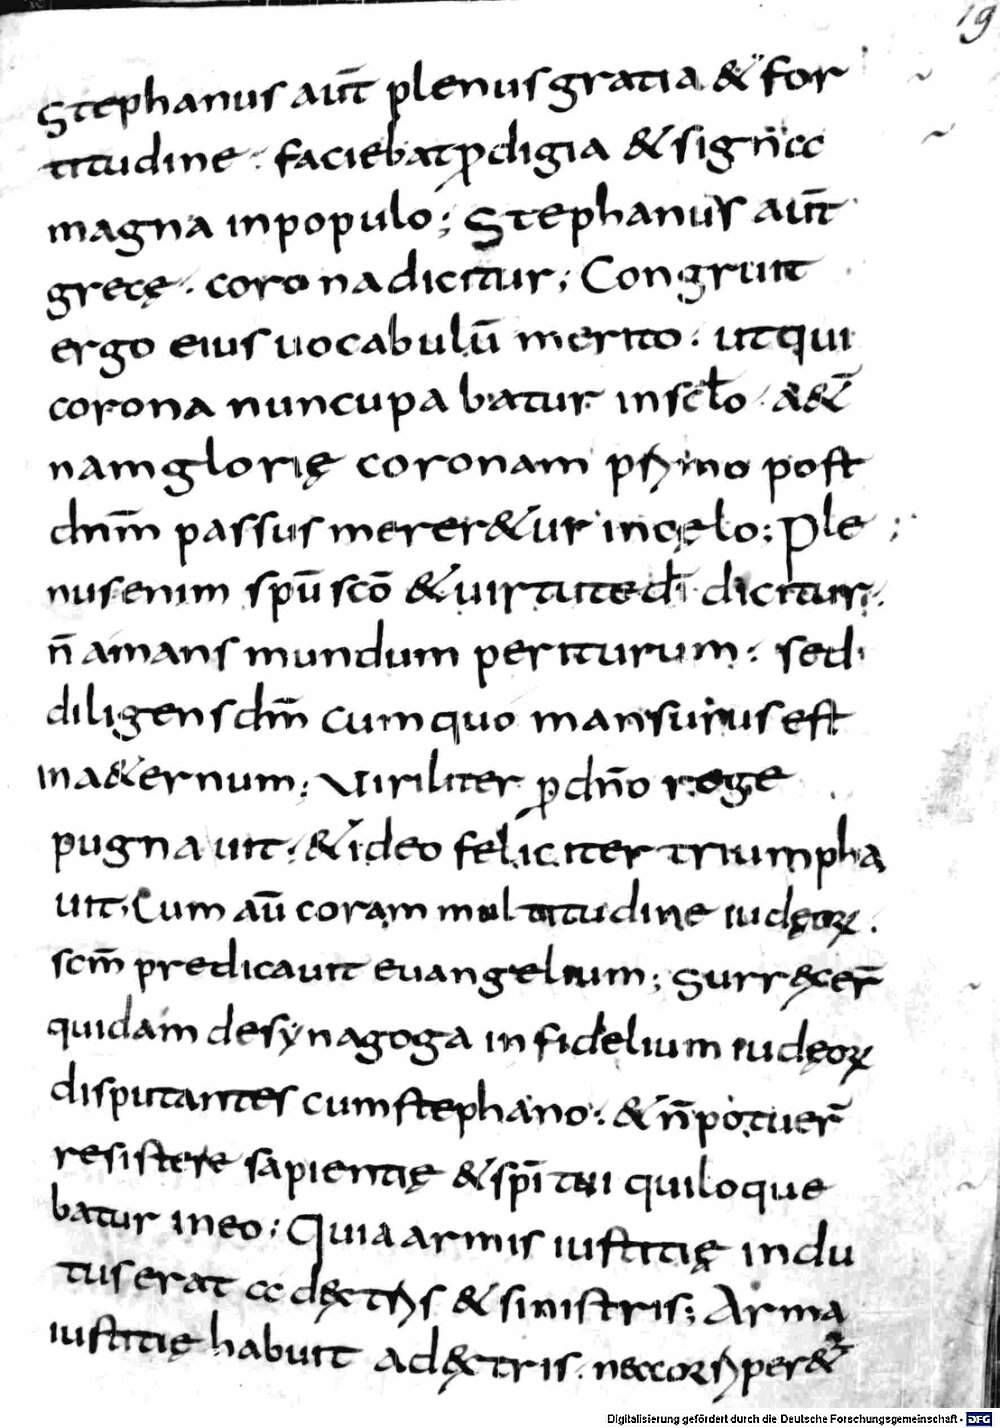 19
Stephanus aut̄ plenus gratia & for
titudine . faciebat ꝓdigia & signa
magna in populo ; Stephanus aut̄
grece . corona dicitur ; Congruit
ergo eius uocabulū merito . ut qui
corona nuncupabatur in sclo . &̄
nam glorię coronam post
dnm̄ passus merer&ur in cęlo ; Ple
nus enim spū scō & uirtute di dicitur .
n̄ amans mundum periturum . sed
diligens dm̄ cum quo mansurus est
in a&ernum ; Viriliter ꝓ dn̄o rege
pugnauit . & ideo feliciter triumpha
uit . Cum aū coram multitudine iudęoꝝ .
scm̄ predicauit euangelium ; Surrexer̄
quidam de synagoga infidelium iudęoꝝ
disputantes cum stephano . & n̄ potuer̄
resistere sapientię & spīitui qui loque
batur in eo ; Quia armis iustitię indu
tus erat a & sinistris ; Arma
iustitię habuit a dextris .
Digitalisierung gefördert durch die Deutsche Forschungsgemeinschaft - DFG